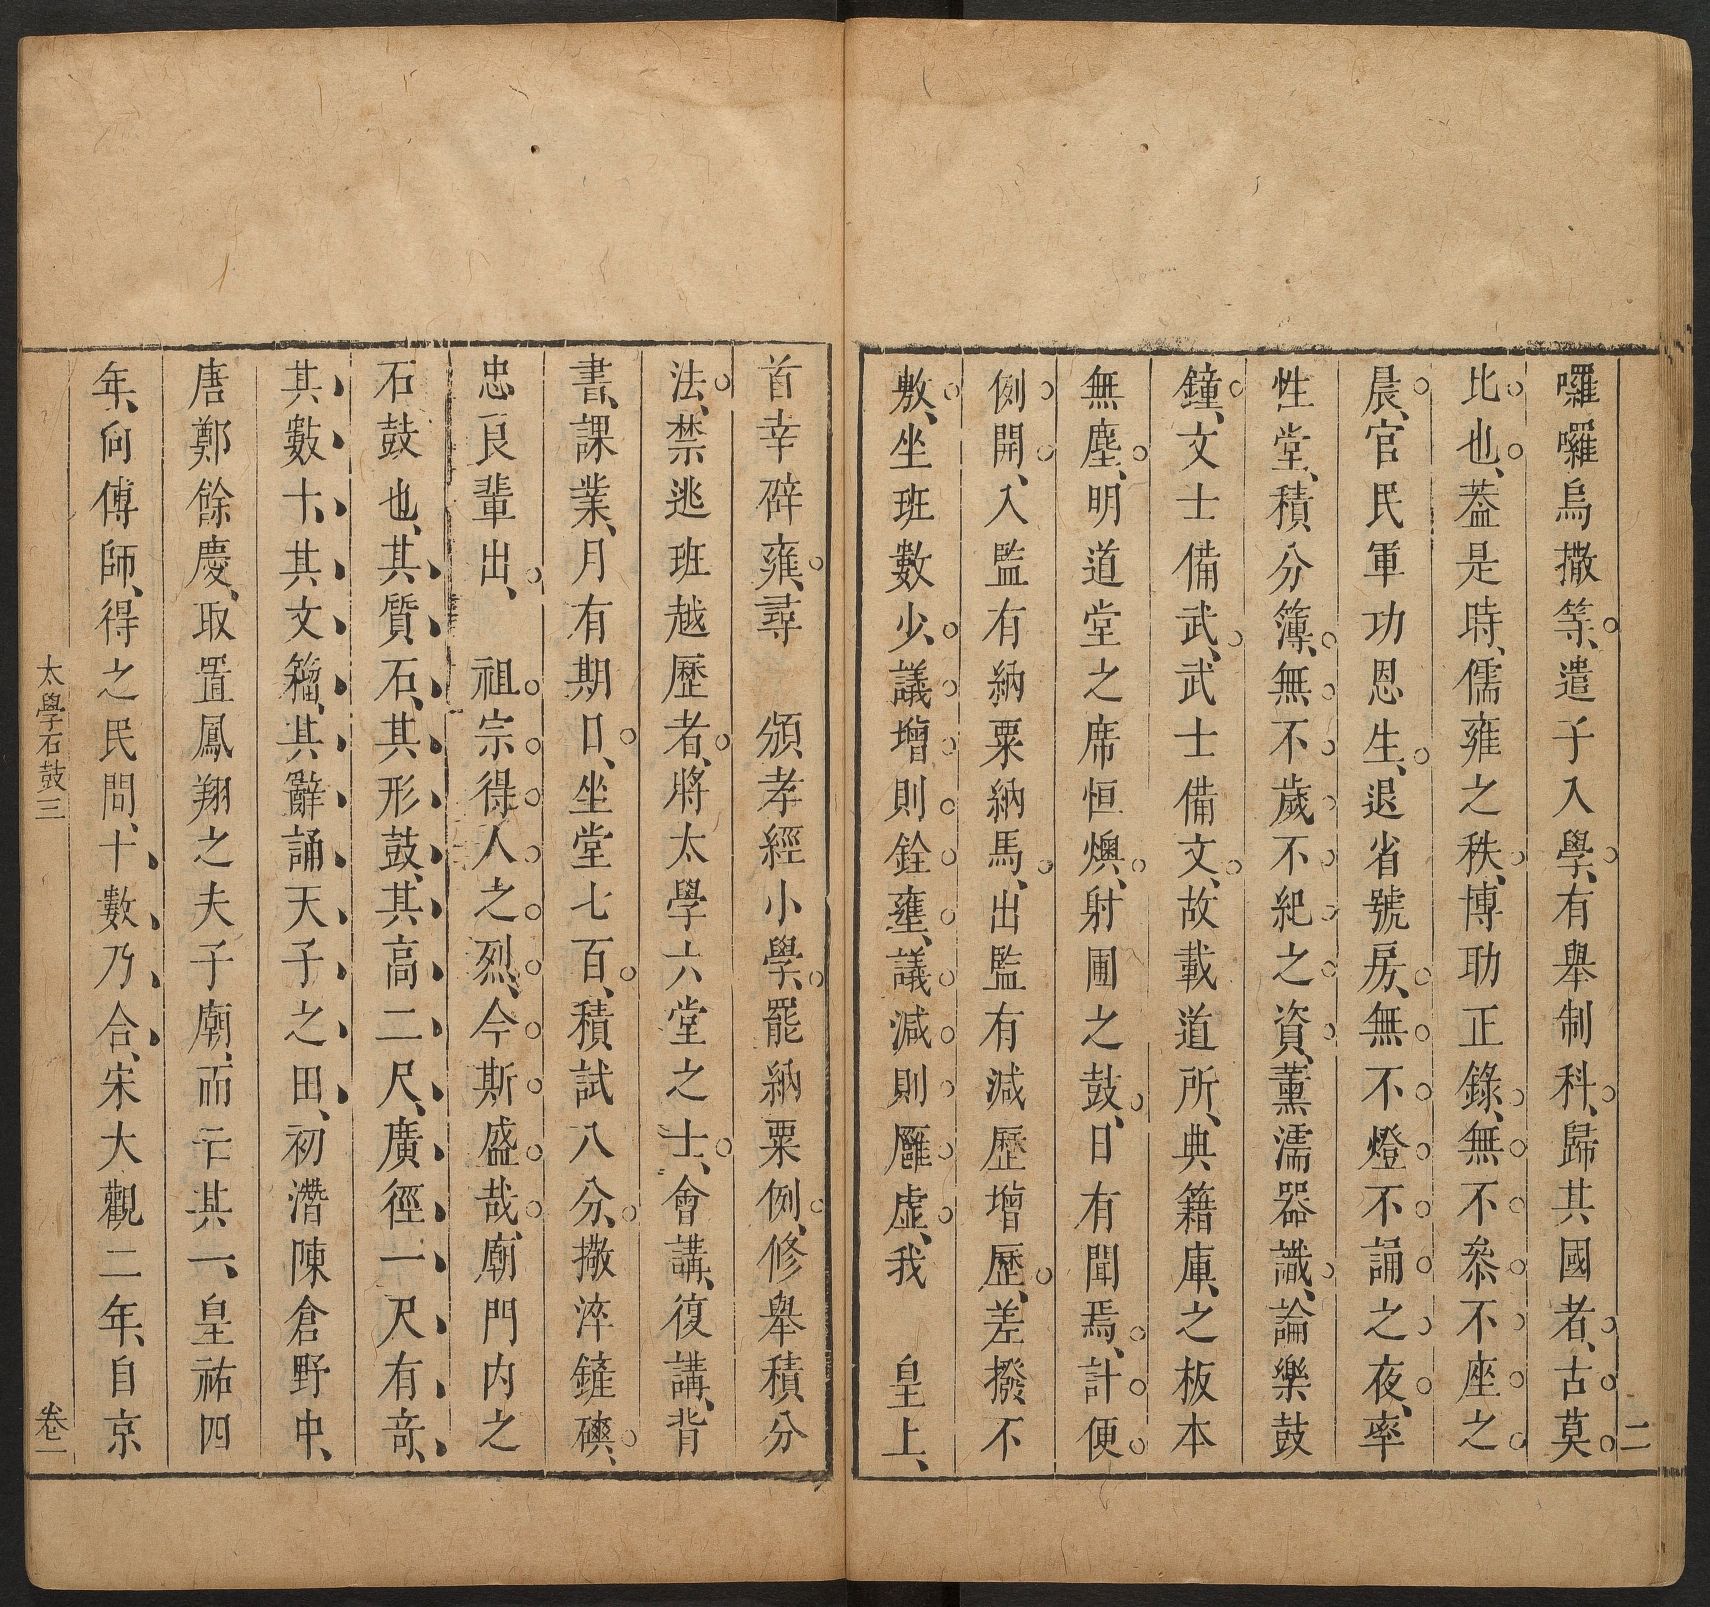 囉囉烏撒等、遣子入學、有舉制科、歸其國者、古莫
比也、葢是時、儒雍之秩、博助正錄、無不叅不座之
晨、官民軍功恩生、退省號房、無不燈不誦之夜、率
性堂、積分簿、無不歲不紀之資、薰濡器識、論樂鼓
鐘、文士備武、武士備文、故載道所、典籍庫、之板本
無塵、明道堂之席恒燠、射圃之鼓、日有聞焉、計便
例開、入監有納粟納馬、出監有減歷增歷、差撥不
敷、坐班數少、議增則銓壅、議減則廱虛、我　皇上、
二
首幸辟雍、尋　頒孝經小學、罷納粟例、修舉積分
法、禁逃班越歷者、將太學六堂之士、會講、復講、背
書、課業、月有期日、坐堂七百、積試八分、撒淬鏟礦、
忠良輩出、　祖宗得人之烈、今斯盛哉、廟門內之
石鼓也、其質石、其形鼓、其高二尺、廣徑一尺有竒、
其數十、其文籀、其辭誦天子之田、初潛陳倉野中、
唐鄭餘慶、取置鳳翔之夫子廟、而亡其一、皇祐四
年、向傅師、得之民間、十數乃合、宋大觀二年、自京
太學石鼓三
卷一